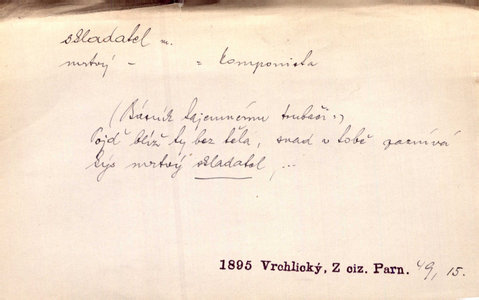 skladatel m.
mrtvý – = komponista
(Básník tajemnému trubači:)
Pojď blíž ty bez těla, snad v tobě zaznívá
kýs mrtvý skladatel, ...
1895 Vrchlický, Z ciz. Parn. 49, 15.